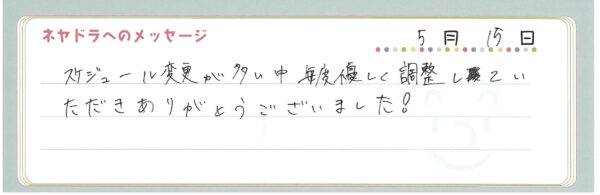 ネヤドラへのメッセージ
5月 15日
スケジュール変更が多い中毎度優しく調整してい
ただきありがとうございました!